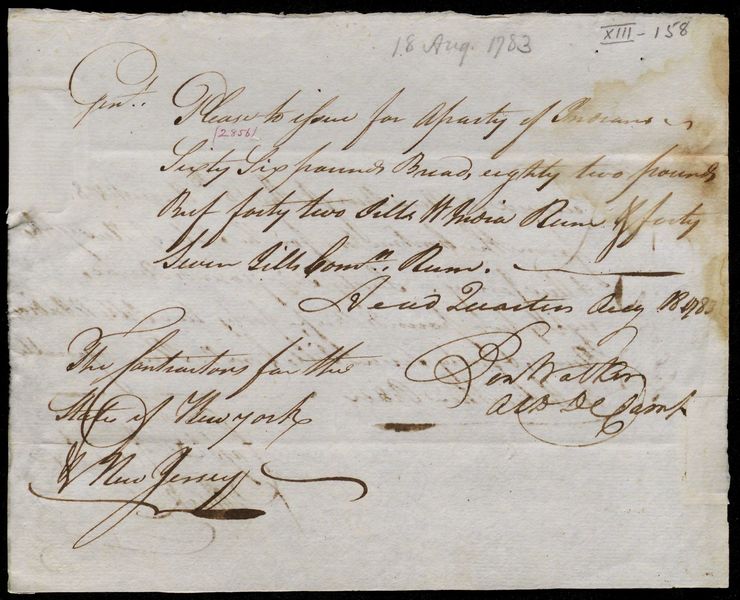 XIII - 158
18 Aug. 1783
Gent. Please to issue for a party of Indians
(2856)
Sixty Six pounds Bread, eighty two pounds
Beef forty two Gills W India Rum & forty
Seven Gills Comn. Rum.
Head Quarters Augt 18 1783
The Contractors for the
State of New york
& New Jersey
Ben Walker
Aid De Camp